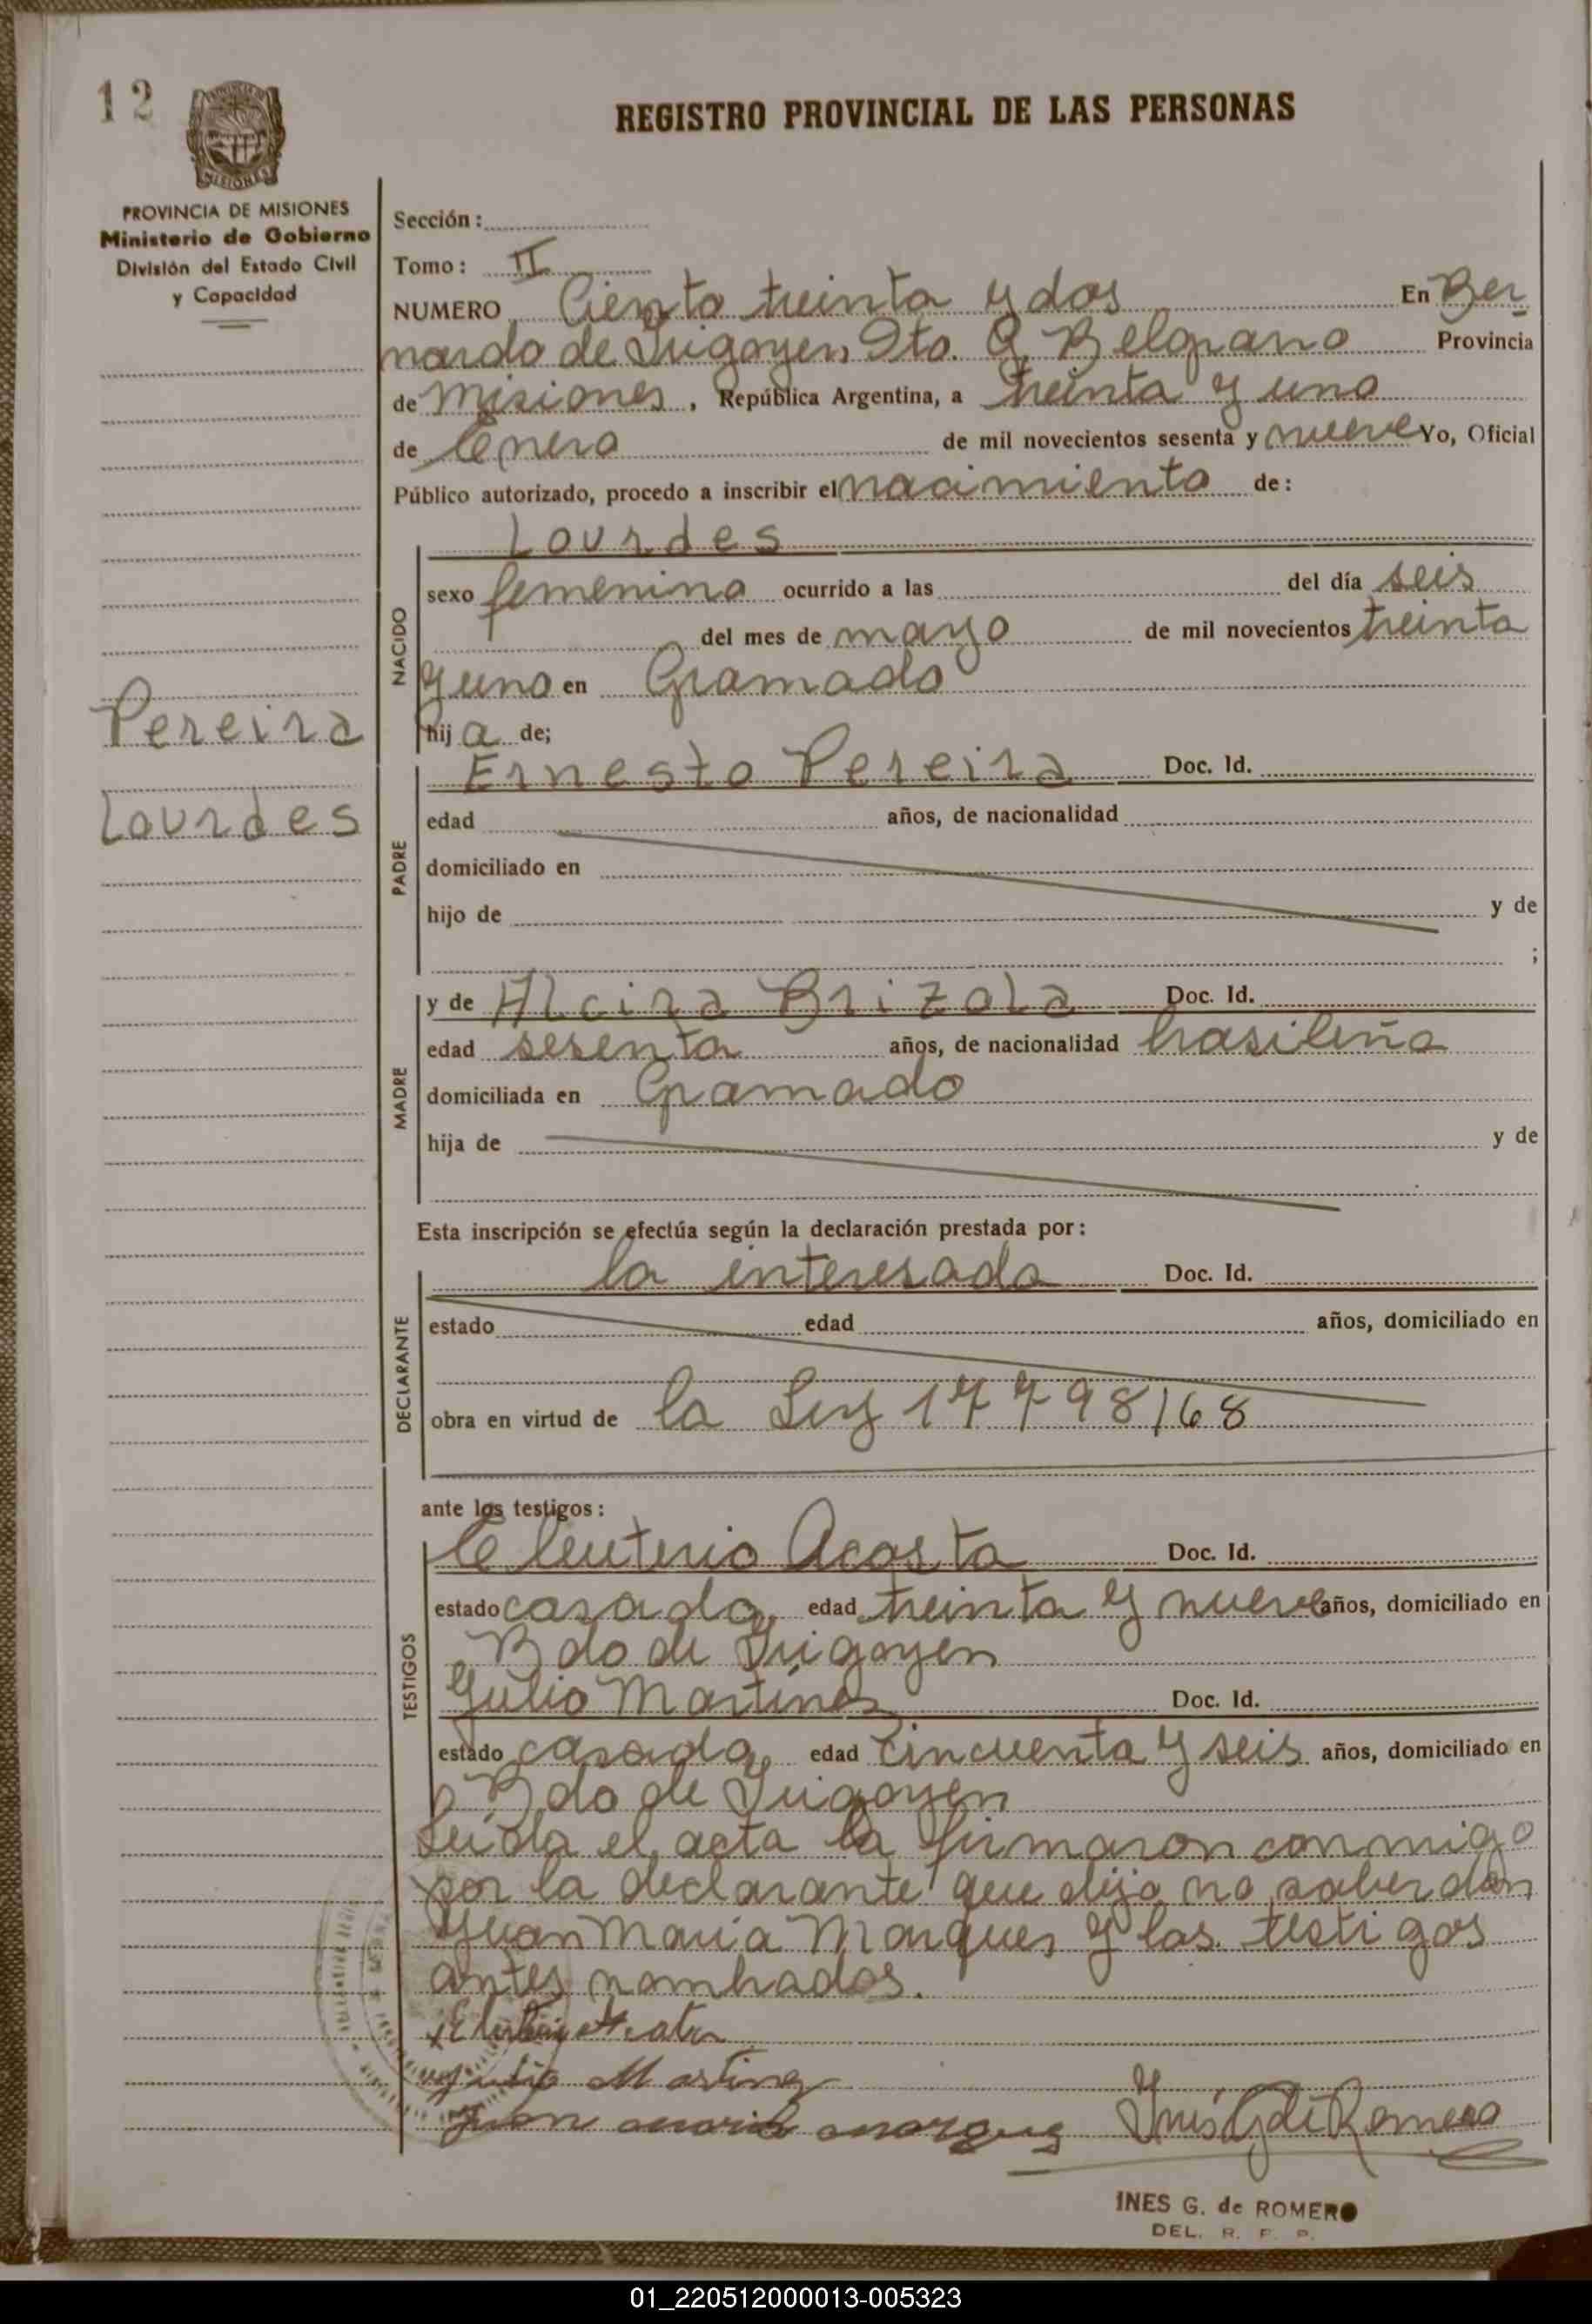 12
REGISTRO PROVINCIAL DE LAS PERSONAS
MISIONES
PROVINCIA DE MISIONES
Ministerio de Gobierno
División del Estado Civil
y Capacidad
Sección:
Tomo: II
NUMERO Ciento treinta y dos En Ber
nardo de Irigoyen Dto. G. Belgrano Provincia
de Misiones, República Argentina, a treinta y uno
de Enero de mil novecientos sesenta y nueve Yo, Oficial
Público autorizado, procedo a inscribir el nacimiento de:
Lourdes
sexo femenino ocurrido a las del día seis
del mes de mayo de mil novecientos treinta
y uno en Gramado
NACIDO
hija de;
Pereira
Lourdes
Ernesto Pereira Doc. Id.
edad años, de nacionalidad
domiciliado en
hijo de y de
;
PADRE
y de Alcira Brizola Doc. Id.
edad sesenta años, de nacionalidad brasileña
domiciliada en Gramado
hija de y de
MADRE
Esta inscripción se efectúa según la declaración prestada por:
la interesada Doc. Id.
estado edad años, domiciliado en
obra en virtud de la Ley 17798/68
DECLARANTE
ante los testigos:
Eleuterio Acosta Doc. Id.
estado casado, edad treinta y nueve años, domiciliado en
Bdo de Irigoyen
Julio Martinez Doc. Id.
estado casado, edad cincuenta y seis años, domiciliado en
Bdo de Irigoyen
TESTIGOS
Leída el acta la firmaron conmigo
por la declarante que dijo no saber don
Juan María Marques y los testigos
antes nombrados.
Julio Martinez
Juan Maria Marques Inés G de Romero
INES G. de ROMERO
DEL. R. P. P.
01_220512000013-005323